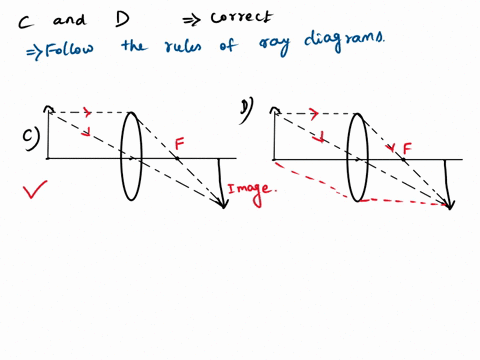 C and D ⇒ correct
⇒ Follow the rules of ray diagrams.
C)
F
Image.
D)
F